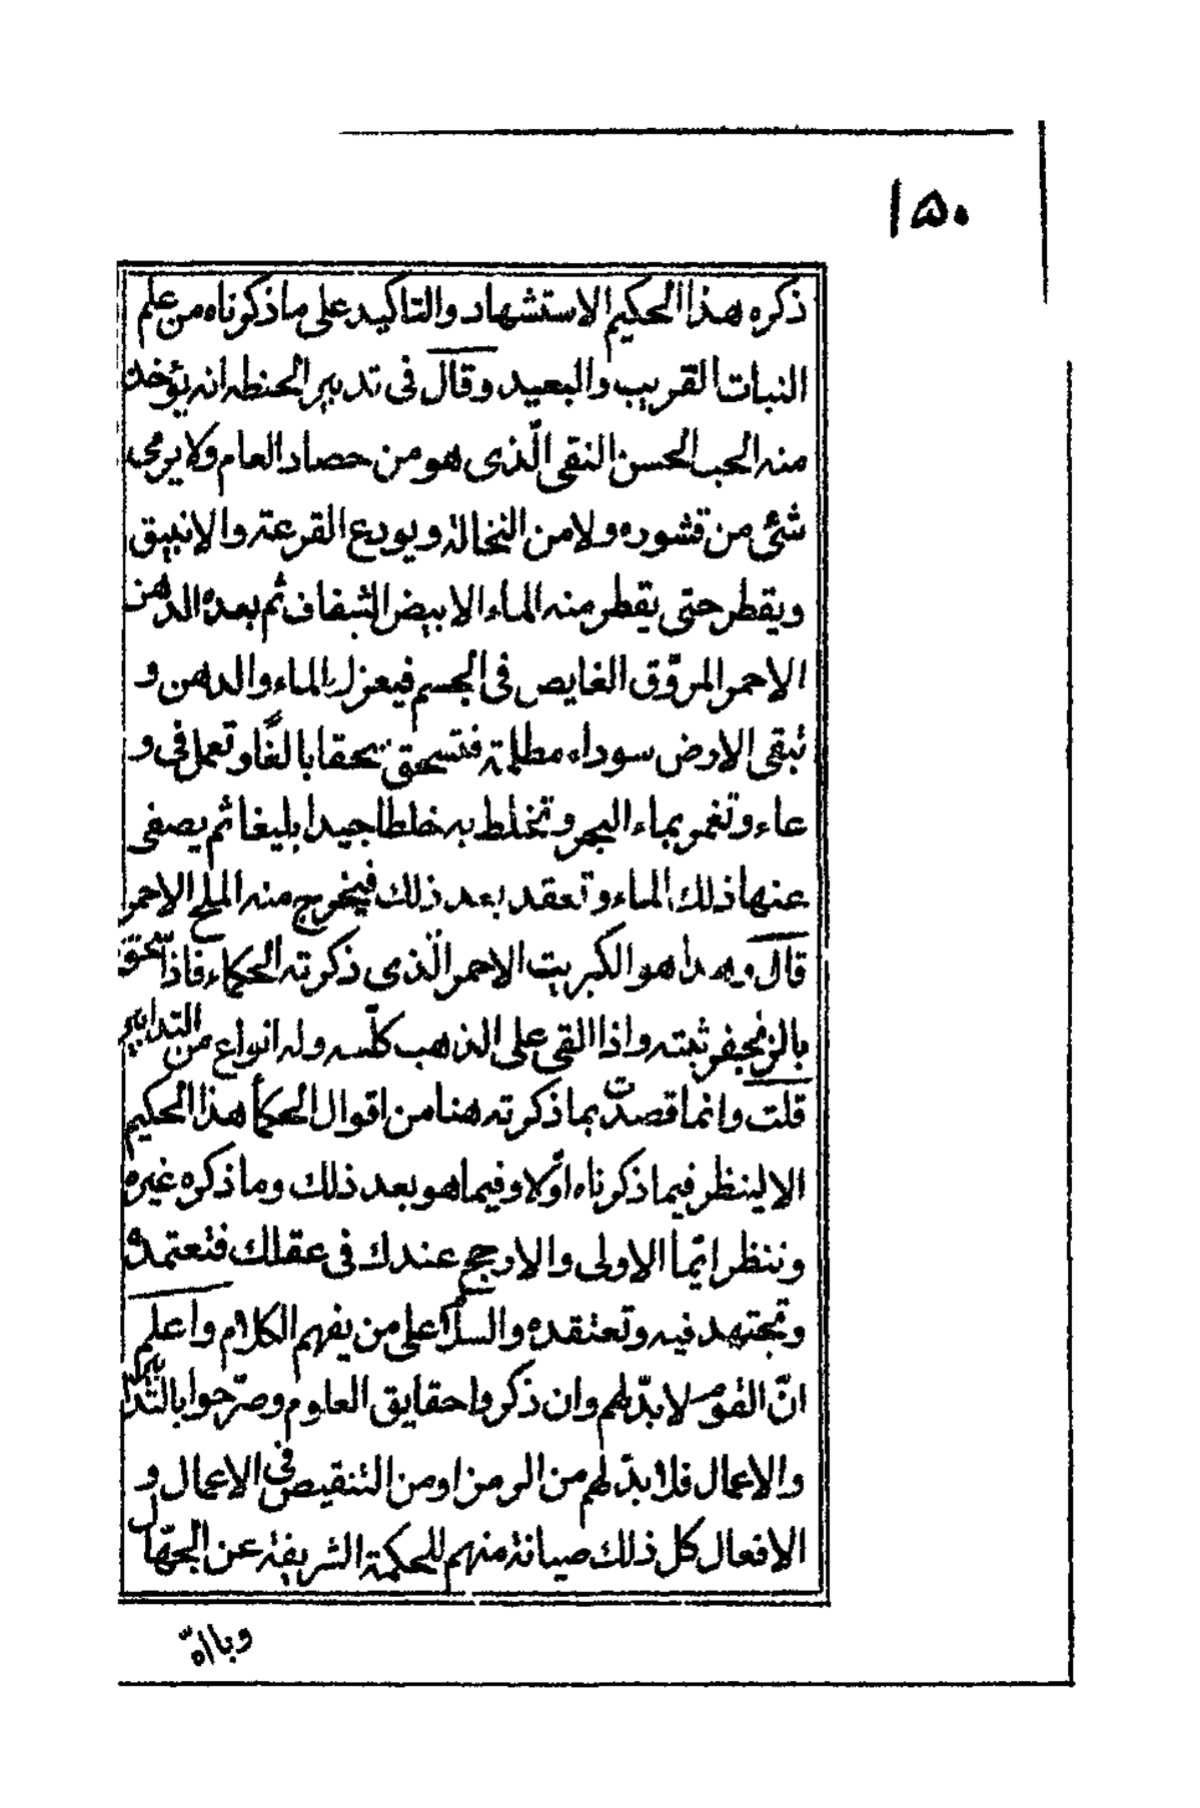 ١٥٠
ذكره هذا الحكيم الاستشهاد والتاكيد على ما ذكرناه من علم
النبات القريب والبعيد وقال فى تدبير الحنطه انه يؤخذ
منه الحب الحسن النقى الّذى هو من حصاد العام ولا يرمى
شئ من قشوره ولا من النخالة ويودع القرعة والانبيق
ويقطر حتى يقطر منه الماء الابيض الشفاف ثم بعده الدهن
الاحمر المروّق الغايص فى الجسم فيعزل الماء والدهن و
تبقى الارض سوداء مظلمة فتسحق سحقا بالغًا وتعمل فى و
عاء وتغمر بماء البحر وتخلط به خلطا جيدا بليغا ثم يصفى
عنها ذلك الماء وتعقد بعد ذلك فيخرج منه الملح الاحمر
قال وهذا هو الكبريت الاحمر الّذى ذكرته الحكماء فاذا سحق
بالزنجفر ثبته واذا القى على الذهب كلّسه وله انواع من التدابير
قلت وانما قصدت بما ذكرته هنا من اقوال الحكمأ هذا الحكيم
الا لينظر فيما ذكرناه اوّلا وفيما هو بعد ذلك وما ذكره غيره
وننظر ايّما الاولى والارجح عندك فى عقلك فتعتمده
وتجتهد فيه وتعتقده والسلام على من يفهم الكلام واعلم
انّ القوم لابدّ لهم وان ذكروا حقايق العلوم وصرّحوا بالتدابير
والاعمال فلابدّ لهم من الرمز او من التنقيص فى الاعمال و
الافعال كل ذلك صيانة منهم للحكمة الشريفة عن الجهّال